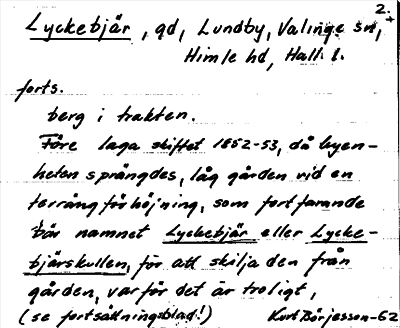 2.
Lyckebjär, gd, Lundby, Valinge sn,
Himle hd, Hall. l.
forts.
berg i trakten.
Före laga skiftet 1852-53, då byen-
heten sprängdes, låg gården vid en
terrängförhöjning, som fortfarande
bär namnet Lyckebjär eller Lycke-
bjärskullen, för att skilja den från
gården, varför det är troligt,
(se fortsättningsblad!) Kurt Börjesson-62